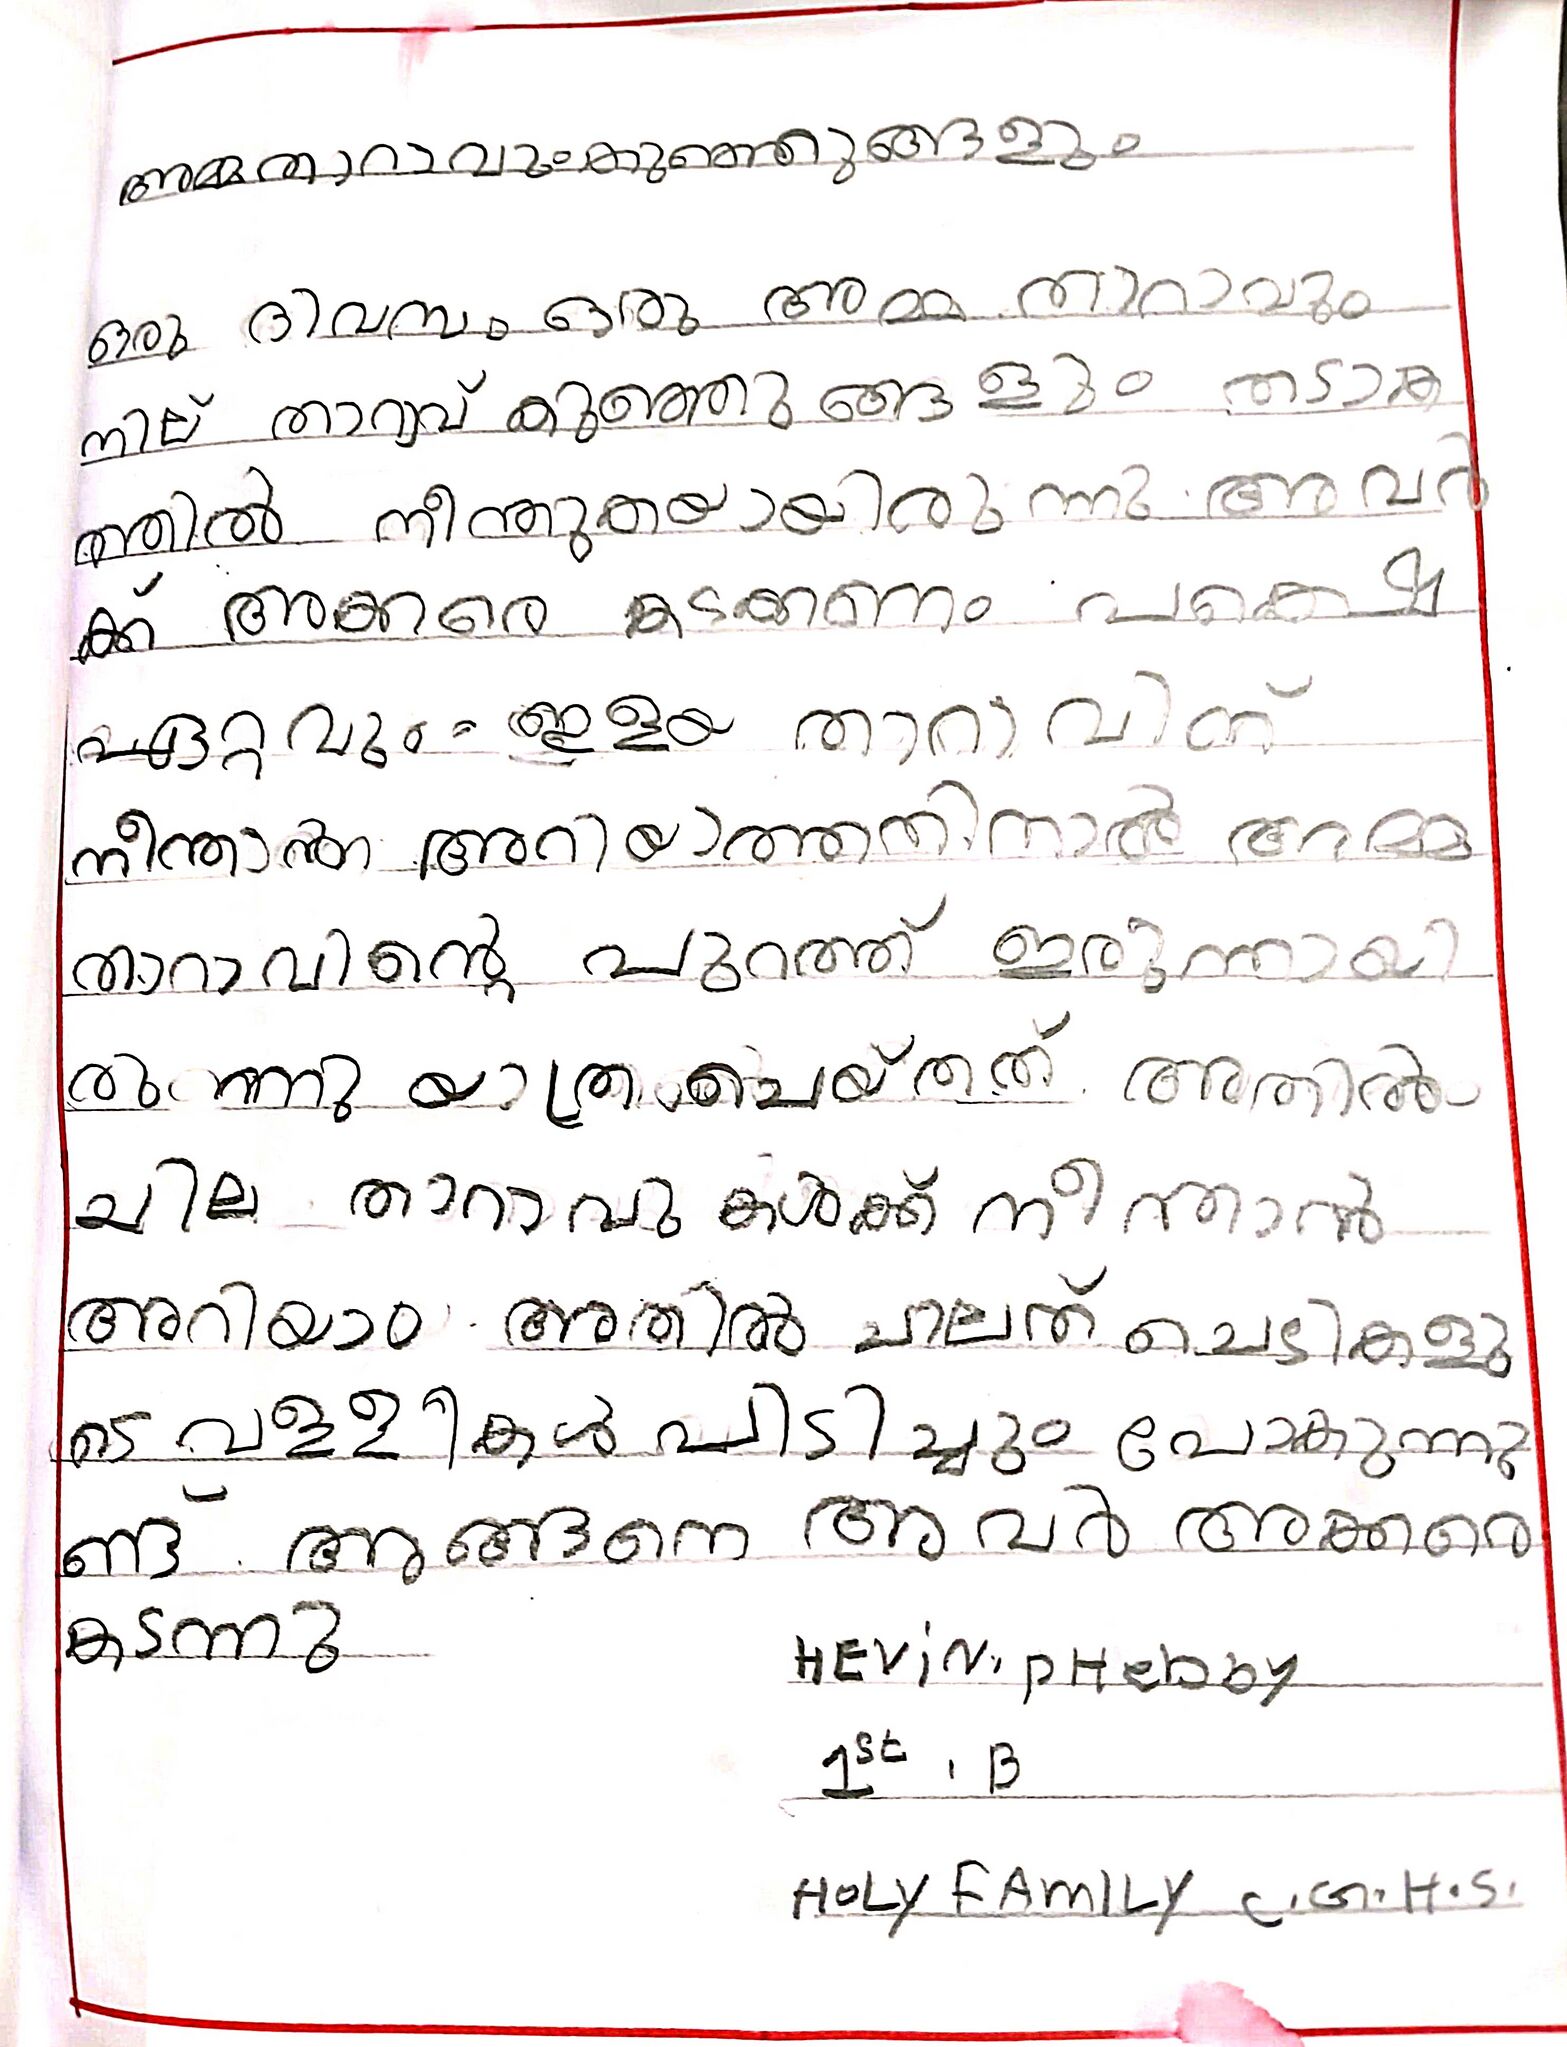 അമ്മതാറാവുംകുഞ്ഞുങ്ങളും
ഒരു ദിവസം ഒരു അമ്മ താറാവും
നില് താറവ് കുഞ്ഞുങ്ങളും തടാക
ത്തിൽ നീന്തുകയായിരുന്നു അവർ
ക്ക് അക്കരെ കടക്കണം പക്ഷെ
ഏറ്റവും ഇളയ താറാവിന്
നീന്താൻ അറിയാത്തതിനാൽ അമ്മ
താറാവിന്റെ പുറത്ത് ഇരുന്നായി
രുന്നു യാത്ര ചെയ്തത് അതിൽ
ചില താറാവുകൾക്ക് നീന്താൻ
അറിയാം അതിൽ ചിലത് ചെടികളു
ടെ വള്ളികൾ പിടിച്ചും പോകുന്നു
ണ്ട് അങ്ങനെ അവർ അക്കരെ
കടന്നു
HEViN. pHebby
1st . B
HOLY FAMILY C.G.H.S.